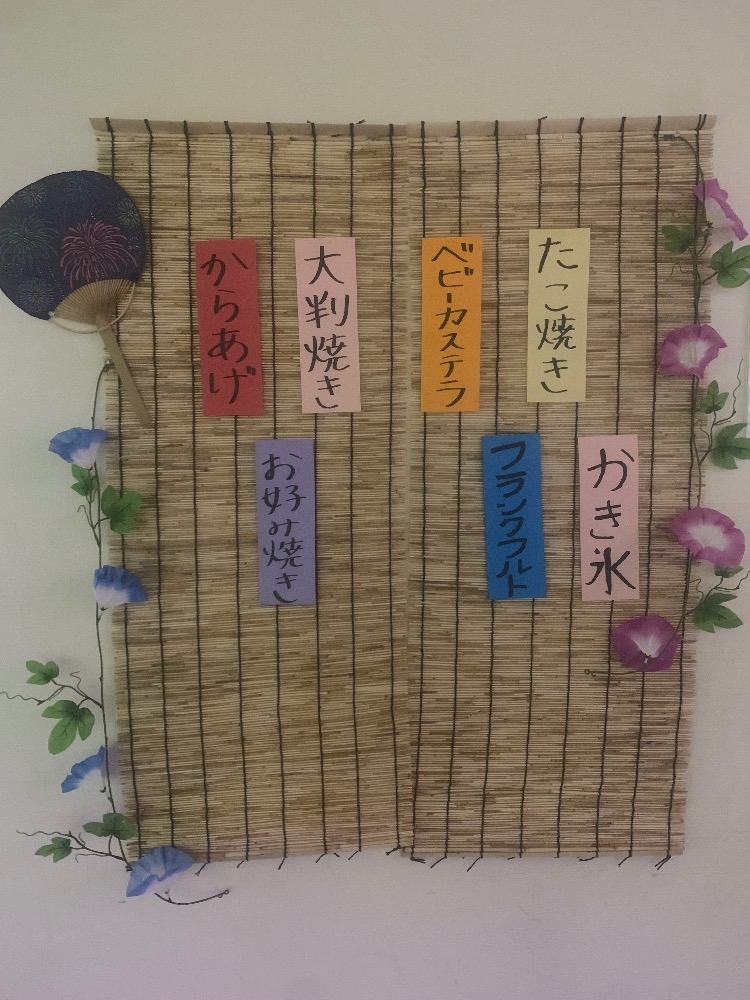 たこ焼き
ベビーカステラ
大判焼き
からあげ
かき氷
フランクフルト
お好み焼き